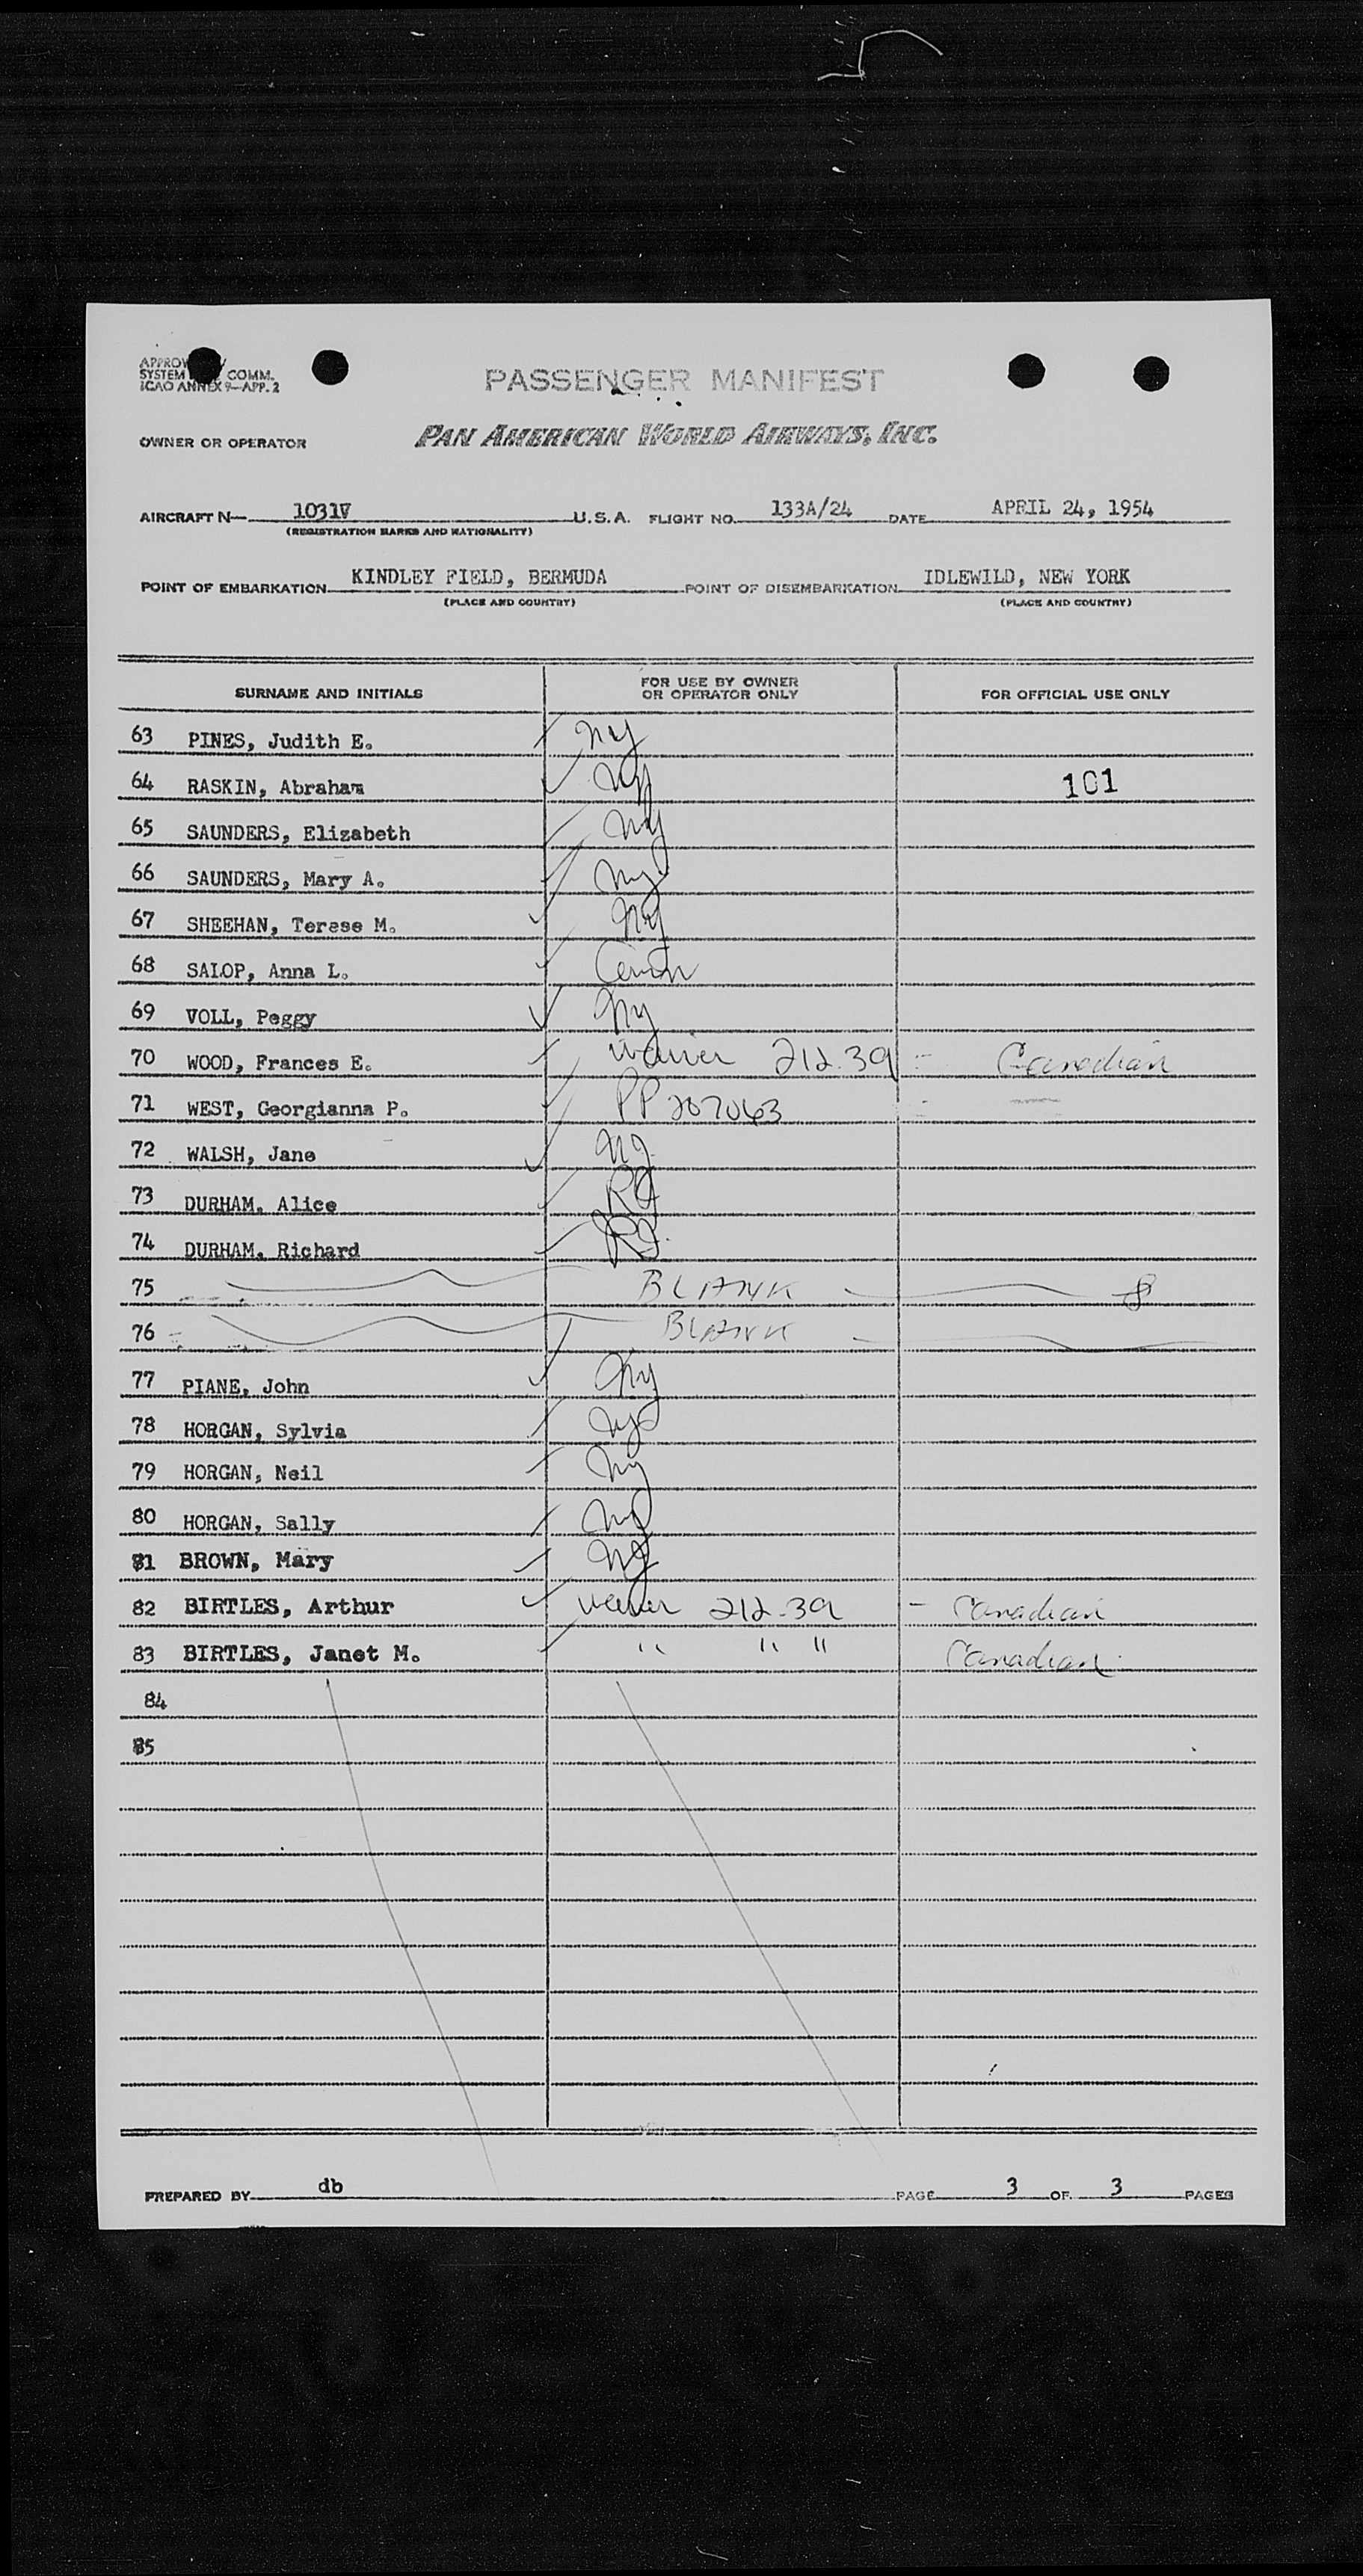 PASSENGER MANIFEST
SYSTEM COMM.
ICAO ANNEX 9—APP. 2
OWNER OR OPERATOR PAN AMERICAN WORLD AIRWAYS, INC.
AIRCRAFT N— 1031V U.S.A. FLIGHT NO. 133A/24 DATE APRIL 24, 1954
(REGISTRATION MARKS AND NATIONALITY)
POINT OF EMBARKATION KINDLEY FIELD, BERMUDA POINT OF DISEMBARKATION IDLEWILD, NEW YORK
(PLACE AND COUNTRY) (PLACE AND COUNTRY)
SURNAME AND INITIALS FOR USE BY OWNER OR OPERATOR ONLY FOR OFFICIAL USE ONLY
63 PINES, Judith E. NY
64 RASKIN, Abraham NY 101
65 SAUNDERS, Elizabeth NY
66 SAUNDERS, Mary A. NY
67 SHEEHAN, Terese M. NY
68 SALOP, Anna L. Conn
69 VOLL, Peggy NY
70 WOOD, Frances E. waiver 212.3a - Canadian
71 WEST, Georgianna P. PP 207063
72 WALSH, Jane NJ
73 DURHAM. Alice RI
74 DURHAM. Richard RI
75 BLANK
76 BLANK
77 PIANE, John NY
78 HORGAN, Sylvia NY
79 HORGAN, Neil NY
80 HORGAN, Sally NY
81 BROWN, Mary NY
82 BIRTLES, Arthur waiver 212.3a - Canadian
83 BIRTLES, Janet M. " " " Canadian
84
85
PREPARED BY db PAGE 3 OF 3 PAGES